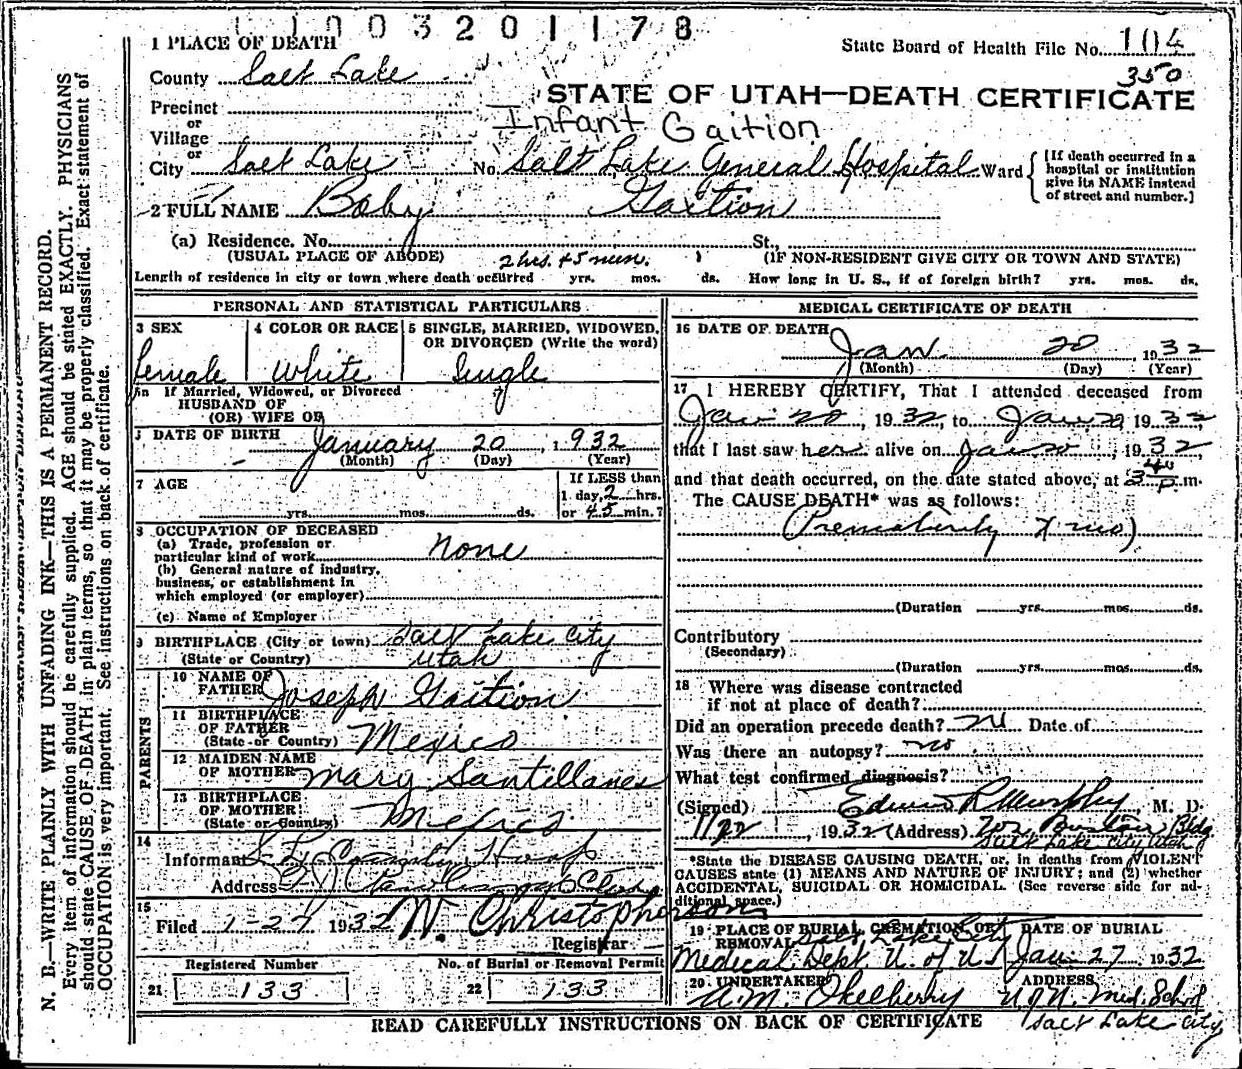 1 1 0 0 3 2 0 1 1 7 8
1 PLACE OF DEATH
State Board of Health File No. 104
350
County Salt Lake
STATE OF UTAH—DEATH CERTIFICATE
Precinct
or
Village
Infant Gaition
or
City Salt Lake No. Salt Lake General Hospital Ward {[If death occurred in a hospital or institution give its NAME instead of street and number.]
2 FULL NAME Baby Gaition
(a) Residence. No. St.,
(USUAL PLACE OF ABODE) 2 hrs. 45 min. (IF NON-RESIDENT GIVE CITY OR TOWN AND STATE)
Length of residence in city or town where death occurred yrs. mos. ds. How long in U. S., if of foreign birth? yrs. mos. ds.
PERSONAL AND STATISTICAL PARTICULARS
3 SEX female
4 COLOR OR RACE White
5 SINGLE, MARRIED, WIDOWED, OR DIVORCED (Write the word) Single
If Married, Widowed, or Divorced
HUSBAND OF
(OR) WIFE OF
DATE OF BIRTH January 20, 1932
(Month) (Day) (Year)
7 AGE yrs. mos. ds.
If LESS than
1 day, 2 hrs.
or 45 min.?
8 OCCUPATION OF DECEASED
(a) Trade, profession or
particular kind of work none
(b) General nature of industry,
business, or establishment in
which employed (or employer)
(c) Name of Employer
9 BIRTHPLACE (City or town) Salt Lake City
(State or Country) Utah
PARENTS
10 NAME OF
FATHER Joseph Gaition
11 BIRTHPLACE
OF FATHER
(State or Country) Mexico
12 MAIDEN NAME
OF MOTHER Mary Santillanes
13 BIRTHPLACE
OF MOTHER
(State or Country) Mexico
14
Informant County Hosp
Address
15
Filed 1-27 1932 W. Christopherson
Registrar
Registered Number
21 133
No. of Burial or Removal Permit
22 133
MEDICAL CERTIFICATE OF DEATH
16 DATE OF DEATH
Jan. 20, 1932
(Month) (Day) (Year)
17 I HEREBY CERTIFY, That I attended deceased from
Jan 20, 1932, to Jan 20, 1932
that I last saw her alive on Jan 20, 1932,
and that death occurred, on the date stated above, at 3 40 p.m.
The CAUSE DEATH* was as follows:
(Prematurity 7 mo)
(Duration yrs. mos. ds.
Contributory
(Secondary)
(Duration yrs. mos. ds.
18 Where was disease contracted
if not at place of death?
Did an operation precede death? no Date of
Was there an autopsy? no
What test confirmed diagnosis?
(Signed) Edwin R Murphy, M. D.
1/22, 1932 (Address) Bldg
Salt Lake City Utah
*State the DISEASE CAUSING DEATH, or, in deaths from VIOLENT
CAUSES state (1) MEANS AND NATURE OF INJURY; and (2) whether
ACCIDENTAL, SUICIDAL OR HOMICIDAL. (See reverse side for ad-
ditional space.)
19 PLACE OF BURIAL, CREMATION, OR
REMOVAL Salt Lake City
Medical Dept U. of U.
DATE OF BURIAL
Jan 27 1932
20 UNDERTAKER
Okelberry
ADDRESS
U of U. Med. School
Salt Lake City
READ CAREFULLY INSTRUCTIONS ON BACK OF CERTIFICATE
N. B.—WRITE PLAINLY WITH UNFADING INK—THIS IS A PERMANENT RECORD.
Every item of information should be carefully supplied. AGE should be stated EXACTLY. PHYSICIANS
should state CAUSE OF DEATH in plain terms, so that it may be properly classified. Exact statement of
OCCUPATION is very important. See instructions on back of certificate.